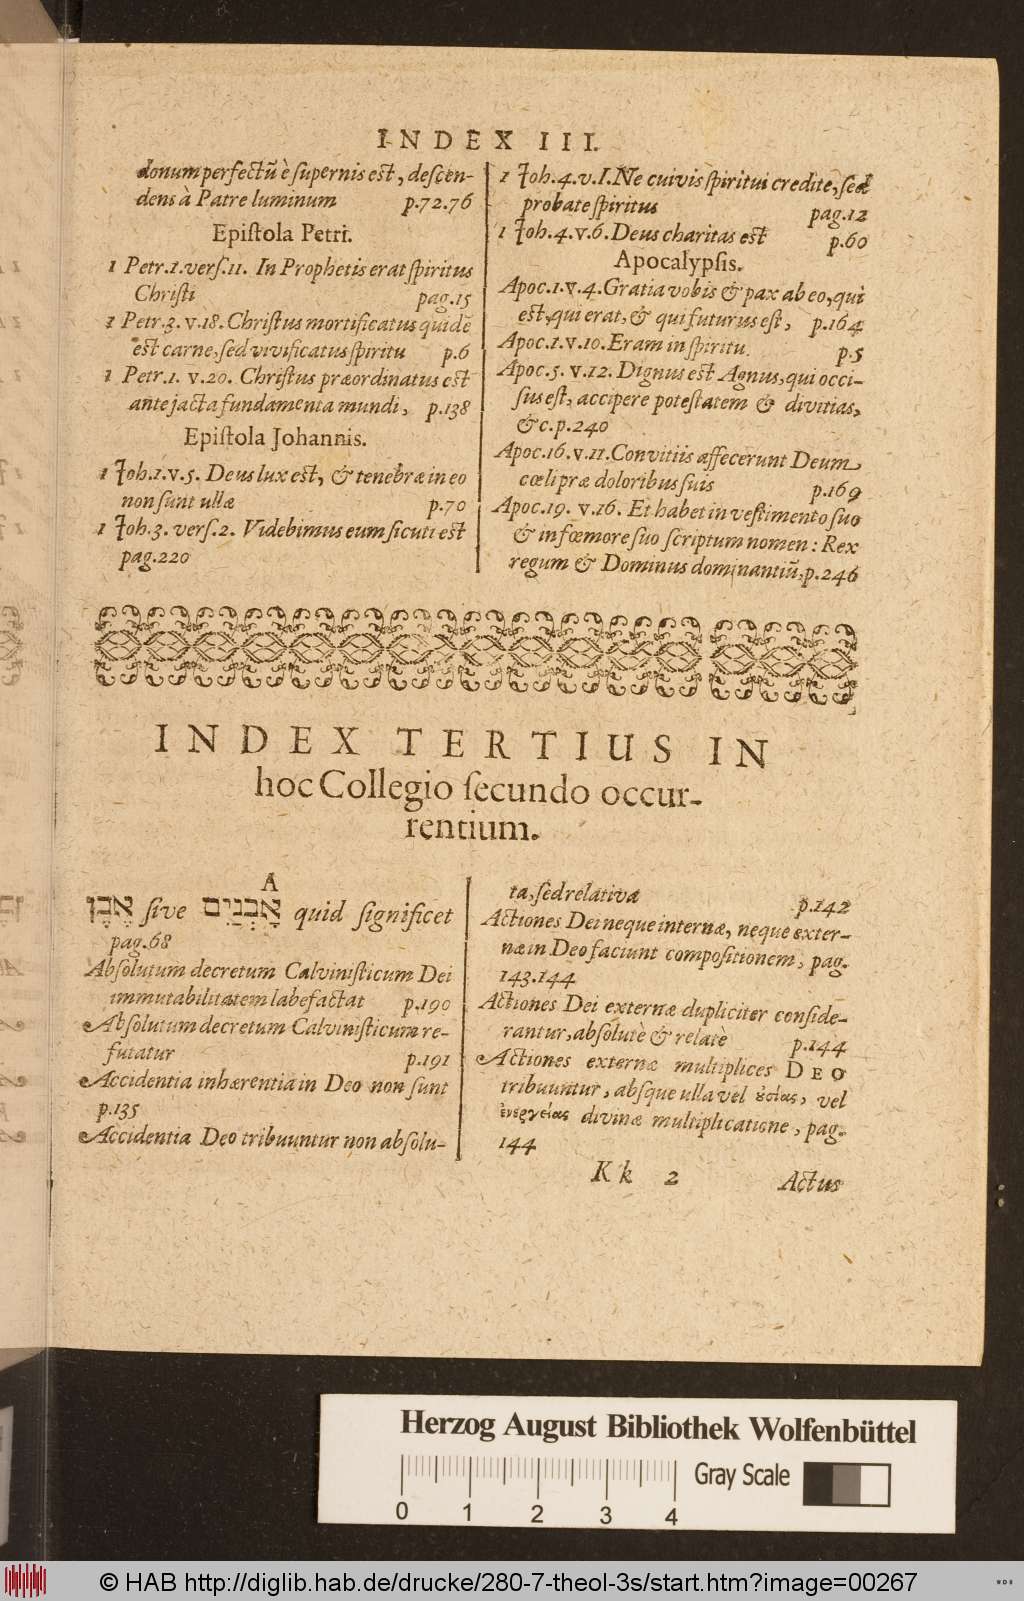 INDEX III.
donum perfectũ è ſupernis eſt, deſcen-
dens à Patre luminum p.72.76
Epiſtola Petri.
1 Petr.1.verſ.11. In Prophetis erat ſpiritus
Chriſti pag.15
1 Petr.3.v.18.Chriſtus mortificatus quidẽ
eſt carne, ſed vivificatus ſpiritu p.6
1 Petr.1. v.20. Chriſtus præordinatus eſt
ante jacta fundamenta mundi, p.138
Epiſtola Johannis.
1 Joh.1.v.5. Deus lux eſt, & tenebræ in eo
non ſunt ullæ p.70
1 Joh.3. verſ.2. Videbimus eum ſicuti eſt
pag.220
1 Joh.4.v.I.Ne cuivis ſpiritui credite, ſed
probate ſpiritus pag.12
1 Joh.4.v.6.Deus charitas eſt p.60
Apocalypſis.
Apoc.1.v.4.Gratia vobis & pax ab eo, qui
eſt, qui erat, & qui futurus eſt, p.164
Apoc.1.v.10.Eram in ſpiritu. p.5
Apoc.5. v.12. Dignus eſt Agnus, qui occi-
ſus eſt, accipere poteſtatem & divitias,
&c.p.240
Apoc.16.v.11.Convitiis affecerunt Deum
cœli præ doloribus ſuis p.169
Apoc.19. v.16. Et habet in veſtimento ſuo
& in fœmore ſuo ſcriptum nomen: Rex
regum & Dominus dominantiũ, p.246
INDEX TERTIUS IN
hoc Collegio ſecundo occur-
rentium.
A
אֶבֶן ſive אָבְנַיִם quid ſignificet
pag.68
Abſolutum decretum Calviniſticum Dei
immutabilitatem labefactat p.190
Abſolutum decretum Calviniſticum re-
futatur p.191
Accidentia inhærentia in Deo non ſunt
p.135
Accidentia Deo tribuuntur non abſolu-
ta, ſed relativa p.142
Actiones Dei neque internæ, neque exter-
næ in Deo faciunt compoſitionem, pag.
143.144
Actiones Dei externæ dupliciter conſide-
rantur, abſolutè & relatè p.144
Actiones externæ multiplices DEO
tribuuntur, abſque ulla vel ȣ̓σίας, vel
ἐνεργείας divinæ multiplicatione, pag.
144
Kk 2 Actus
Herzog August Bibliothek Wolfenbüttel
Gray Scale
0 1 2 3 4
© HAB http://diglib.hab.de/drucke/280-7-theol-3s/start.htm?image=00267